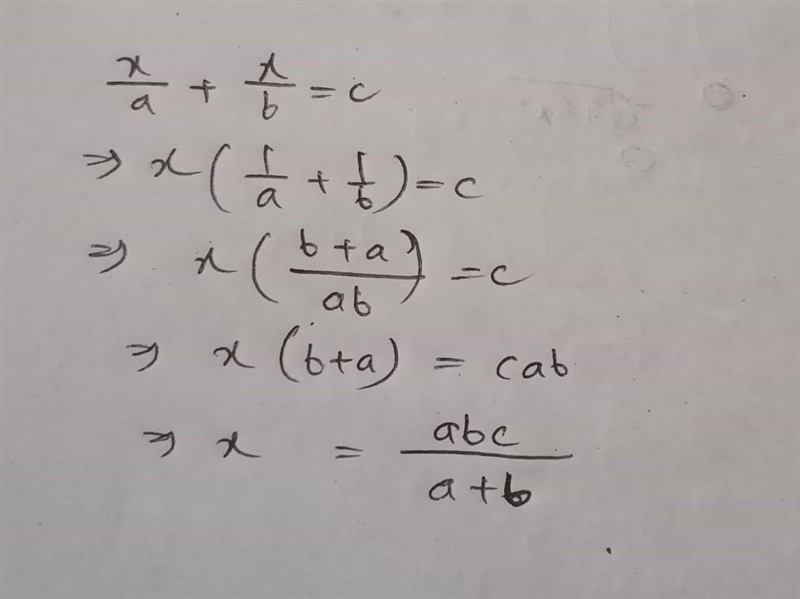 x/a + x/b = c
⇒ x(1/a + 1/b) = c
⇒ x((b+a)/ab) = c
⇒ x(b+a) = cab
⇒ x = abc/(a+b)